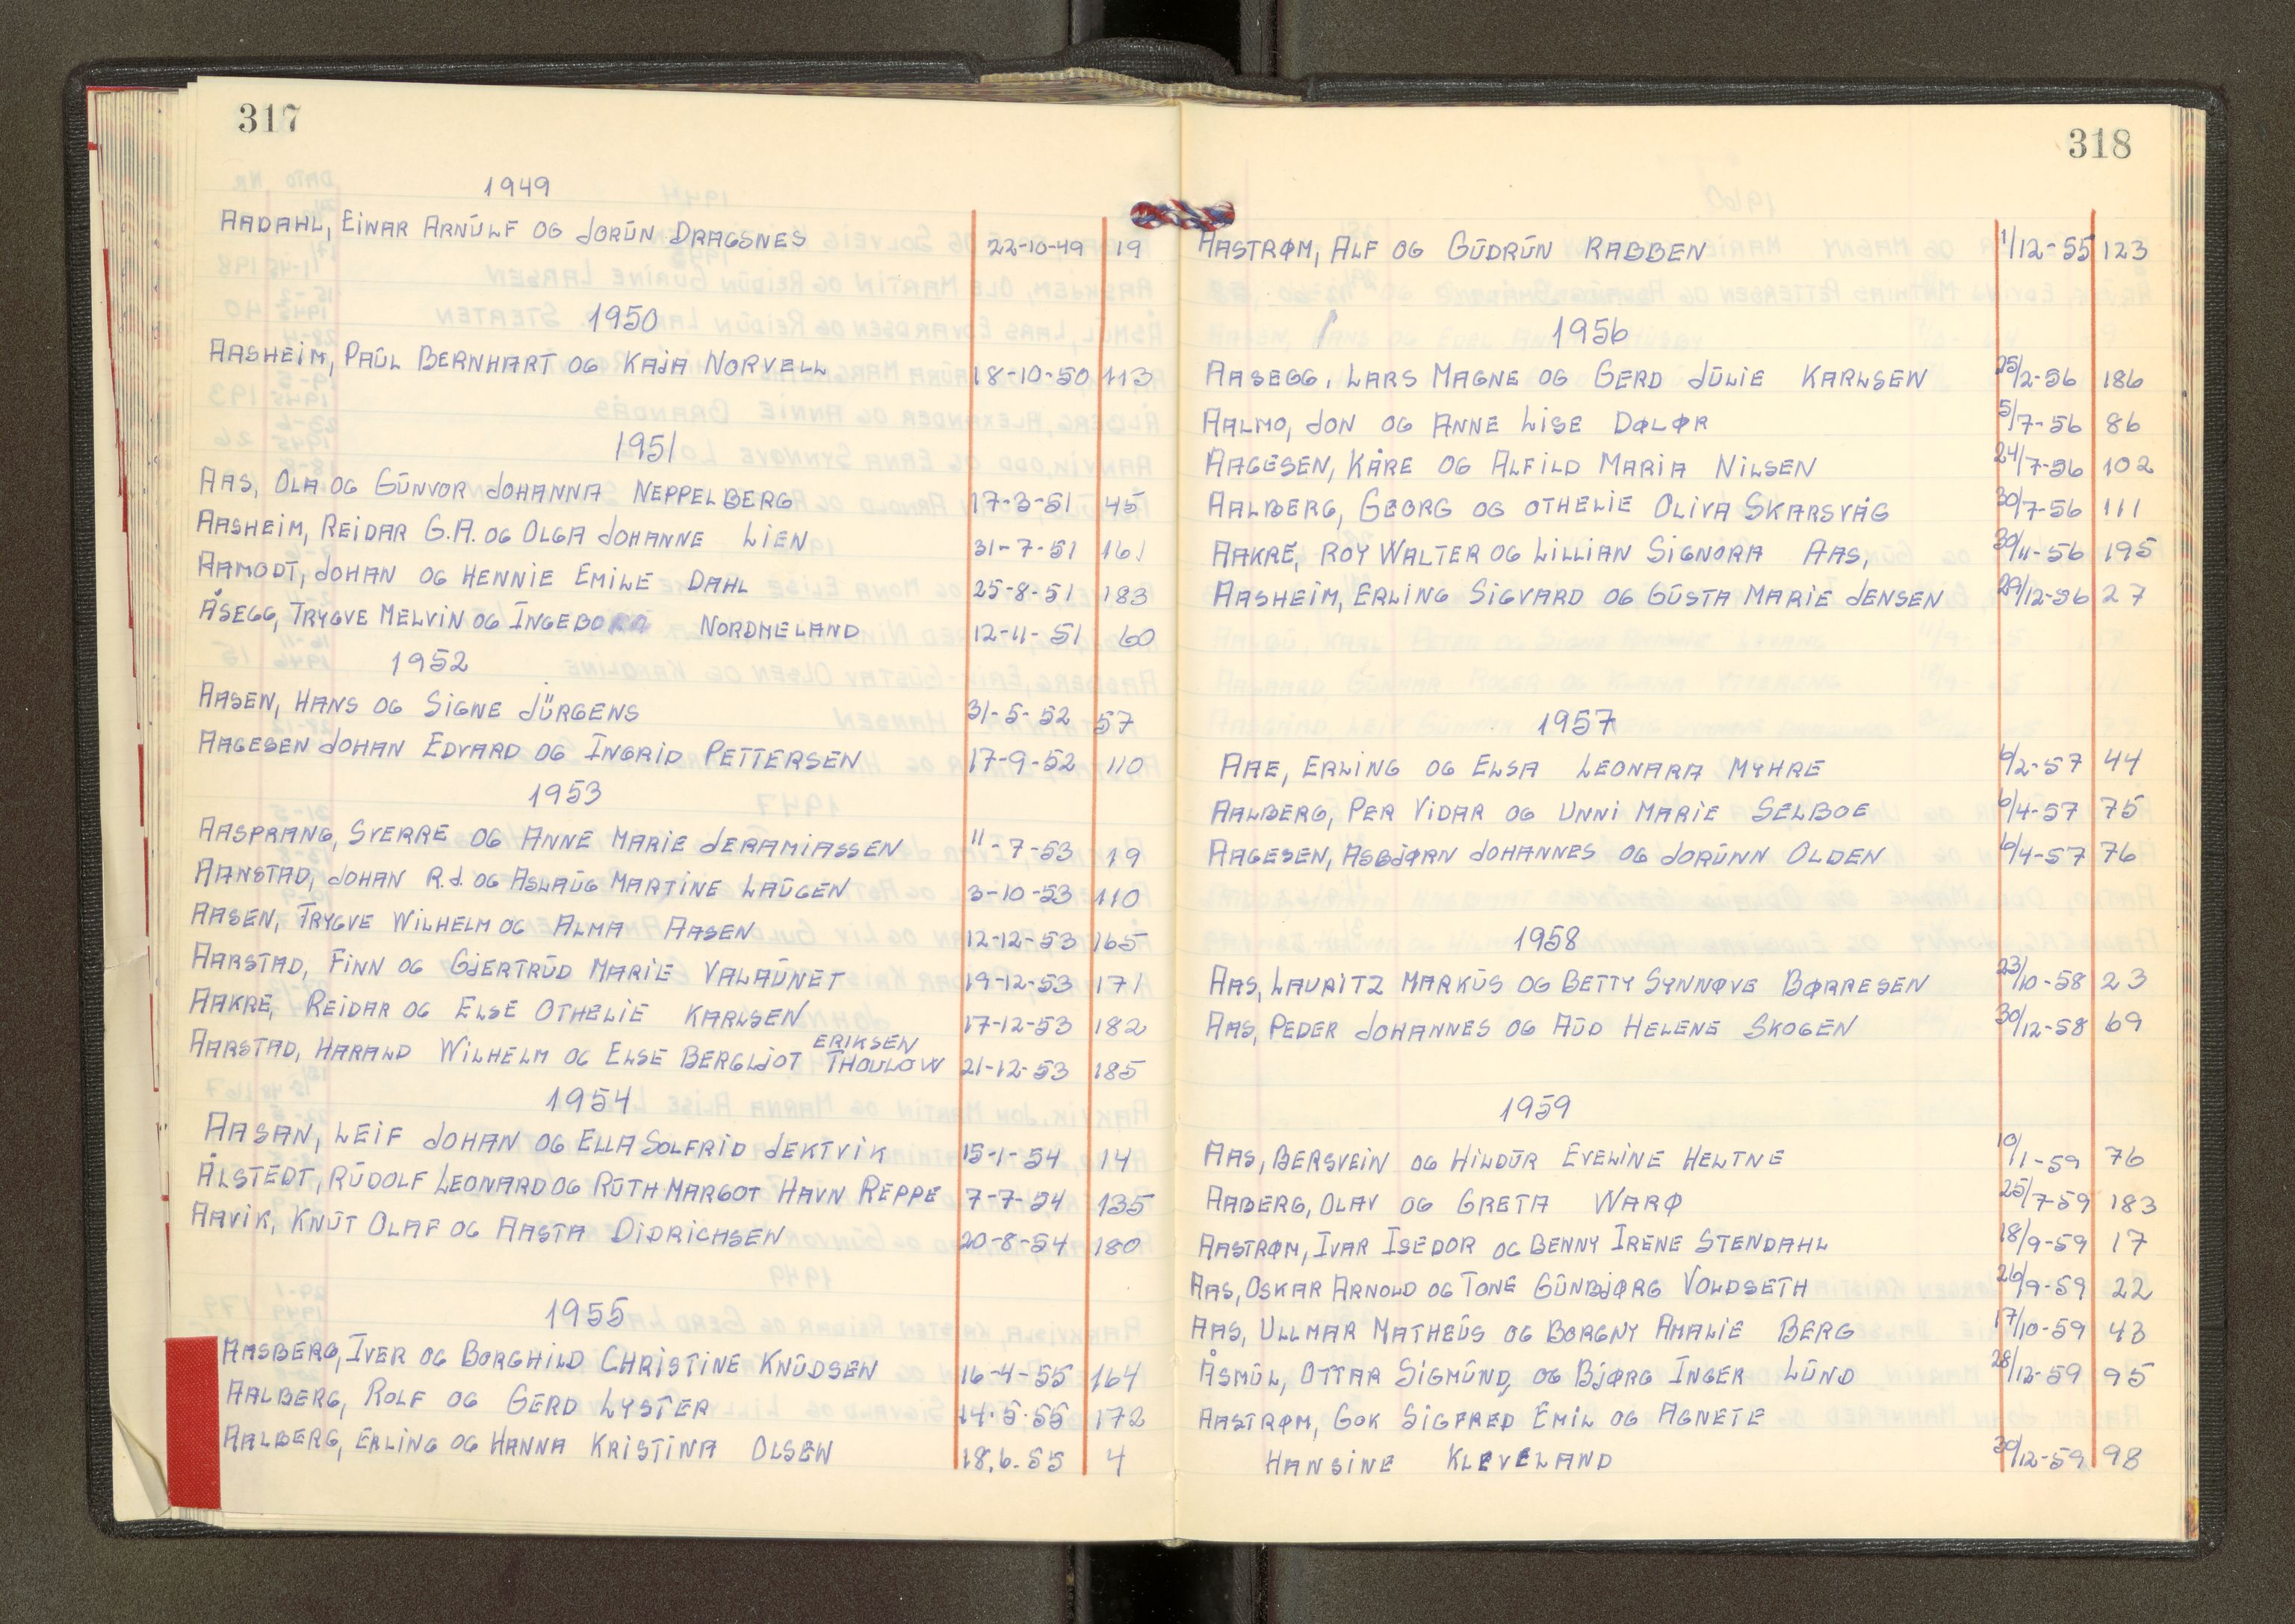 317
1949
AADAHL, EINAR ARNŪLF OG JORŪN DRAGSNES 22-10-49 19
1950
AASHEIM, PAŪL BERNHART OG KAJA NORVELL 18-10-50 113
1951
AAS, OLA OG GŪNVOR JOHANNA NEPPELBERG 17-3-51 45
AASHEIM, REIDAR G.A. OG OLGA JOHANNE LIEN 31-7-51 161
AAMODT, JOHAN OG HENNIE EMILE DAHL 25-8-51 183
ÅSEGG, TRYGVE MELVIN OG INGEBORG NORDMELAND 12-11-51 60
1952
AASEN, HANS OG SIGNE JÜRGENS 31-5-52 57
AAGESEN JOHAN EDVARD OG INGRID PETTERSEN 17-9-52 110
1953
AASPRANG, SVERRE OG ANNE MARIE JERAMIASSEN 11-7-53 19
AANSTAD, JOHAN R.J. OG ASLAŪG MARTINE LAŪGEN 3-10-53 110
AASEN, TRYGVE WILHELM OG ALMA AASEN 12-12-53 165
AARSTAD, FINN OG GJERTRŪD MARIE VALAŪNET 19-12-53 171
AAKRE, REIDAR OG ELSE OTHELIE KARLSEN 17-12-53 182
ERIKSEN
AARSTAD, HARALD WILHELM OG ELSE BERGLJOT THOULOW 21-12-53 185
1954
AASAN, LEIF JOHAN OG ELLA SOLFRID JEKTVIK 15-1-54 14
ÅLSTEDT, RŪDOLF LEONARD OG RŪTH MARGOT HAVN REPPE 7-7-54 135
AAVIK, KNŪT OLAF OG AASTA DIDRICHSEN 20-8-54 180
1955
AASBERG, IVER OG BORGHILD CHRISTINE KNŪDSEN 16-4-55 164
AALBERG, ROLF OG GERD LYSTER 14.5.55 172
AALBERG, ERLING OG HANNA KRISTINA OLSEN 18.6.55 4
318
AASTRØM, ALF OG GŪDRŪN RABBEN 1/12-55 123
1956
AASEGG, LARS MAGNE OG GERD JŪLIE KARLSEN 25/2-56 186
AALMO, JON OG ANNE LISE DØLØR 5/7-56 86
AAGESEN, KÅRE OG ALFILD MARIA NILSEN 24/7-56 102
AALBERG, GEORG OG OTHELIE OLIVA SKARSVÅG 30/7-56 111
AAKRE, ROY WALTER OG LILLIAN SIGNORA AAS, 30/11-56 195
AASHEIM, ERLING SIGVARD OG GŪSTA MARIE JENSEN 29/12-56 27
1957
AAE, ERLING OG ELSA LEONARA MYHRE 6/2-57 44
AALBERG, PER VIDAR OG UNNI MARIE SELBOE 6/4-57 75
AAGESEN, ASBJØRN JOHANNES OG JORŪNN OLDEN 6/4-57 76
1958
AAS, LAURITZ MARKŪS OG BETTY SYNNØVE BØRRESEN 23/10-58 23
AAS, PEDER JOHANNES OG AŪD HELENE SKOGEN 30/12-58 69
1959
AAS, BERSVEIN OG HILDŪR EVELINE HELTNE 10/1-59 76
AABERG, OLAV OG GRETA WARØ 25/7-59 183
AASTRØM, IVAR ISEDOR OG BENNY IRENE STENDAHL 18/9-59 17
AAS, OSKAR ARNOLD OG TONE GŪNBJØRG VOLDSETH 26/9-59 22
AAS, ULLMAR MATHEŪS OG BORGNY AMALIE BERG 17/10-59 43
ÅSMŪL, OTTAR SIGMŪND, OG BJØRG INGER LŪND 28/12-59 95
AASTRØM, GOK SIGFRED EMIL OG AGNETE
HANSINE KLEVELAND 30/12-59 98